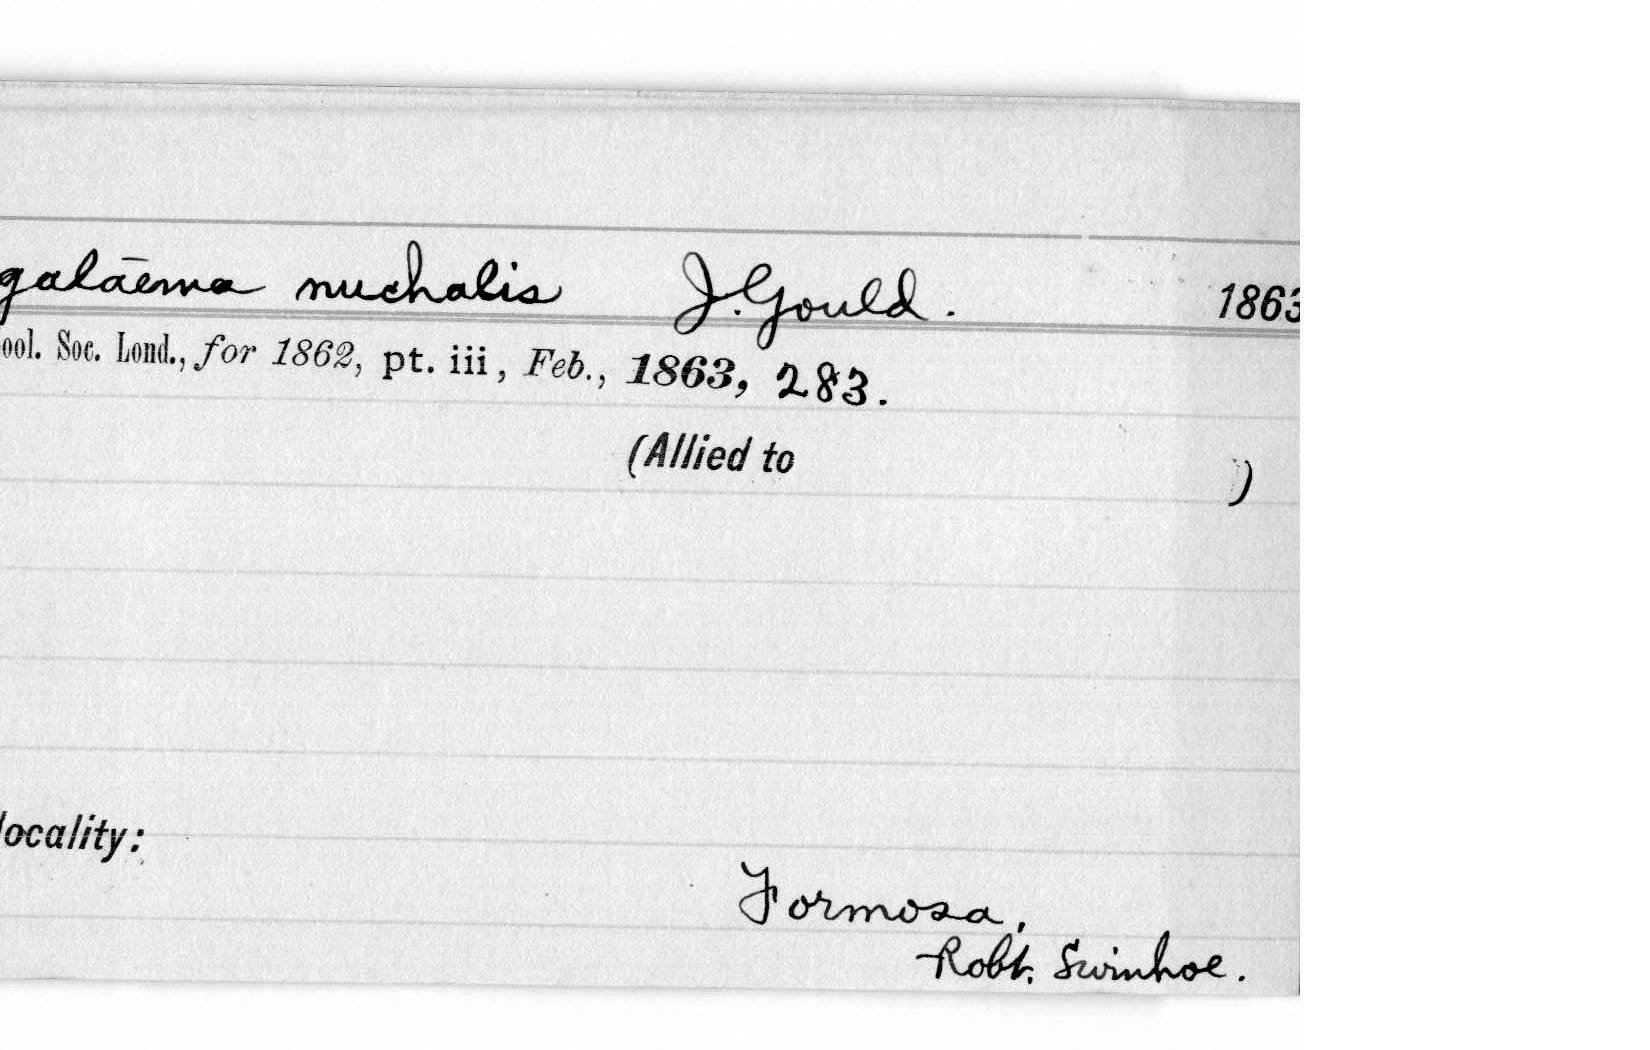 galaema nuchalis J. Gould. 1863
ool. Soc. Lond., for 1862, pt. iii, Feb., 1863, 283.
(Allied to )
locality:
Formosa,
Robt. Swinhoe.